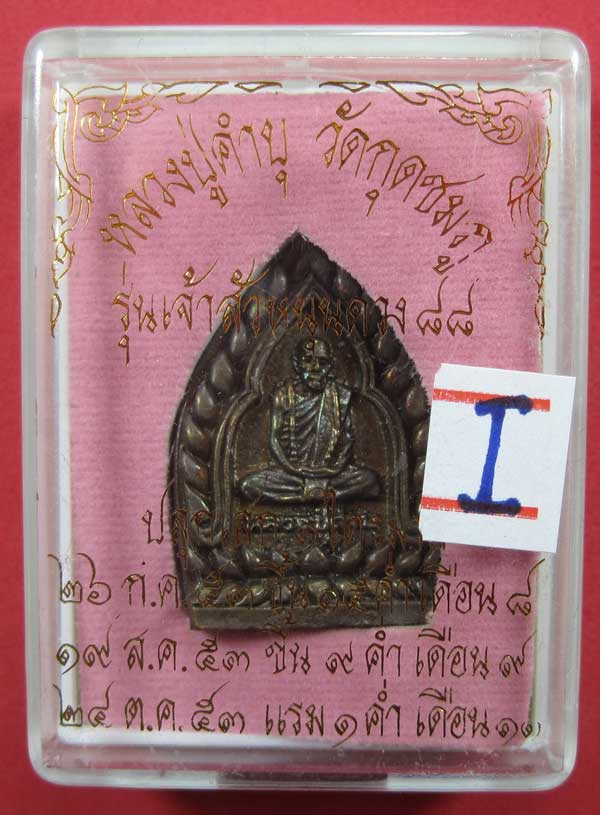 หลวงปู่คำบุ วัดกุดชมภู
รุ่นเจ้าสัวหนุนดวง ๘๘
I
ปลุกเสก ๓ ไตรมาส
๒๖ ก.ค. ๕๓ ขึ้น ๑๕ ค่ำ เดือน ๘
๑๙ ส.ค. ๕๓ ขึ้น ๙ ค่ำ เดือน ๙
๒๔ ต.ค. ๕๓ แรม ๑ ค่ำ เดือน ๑๑